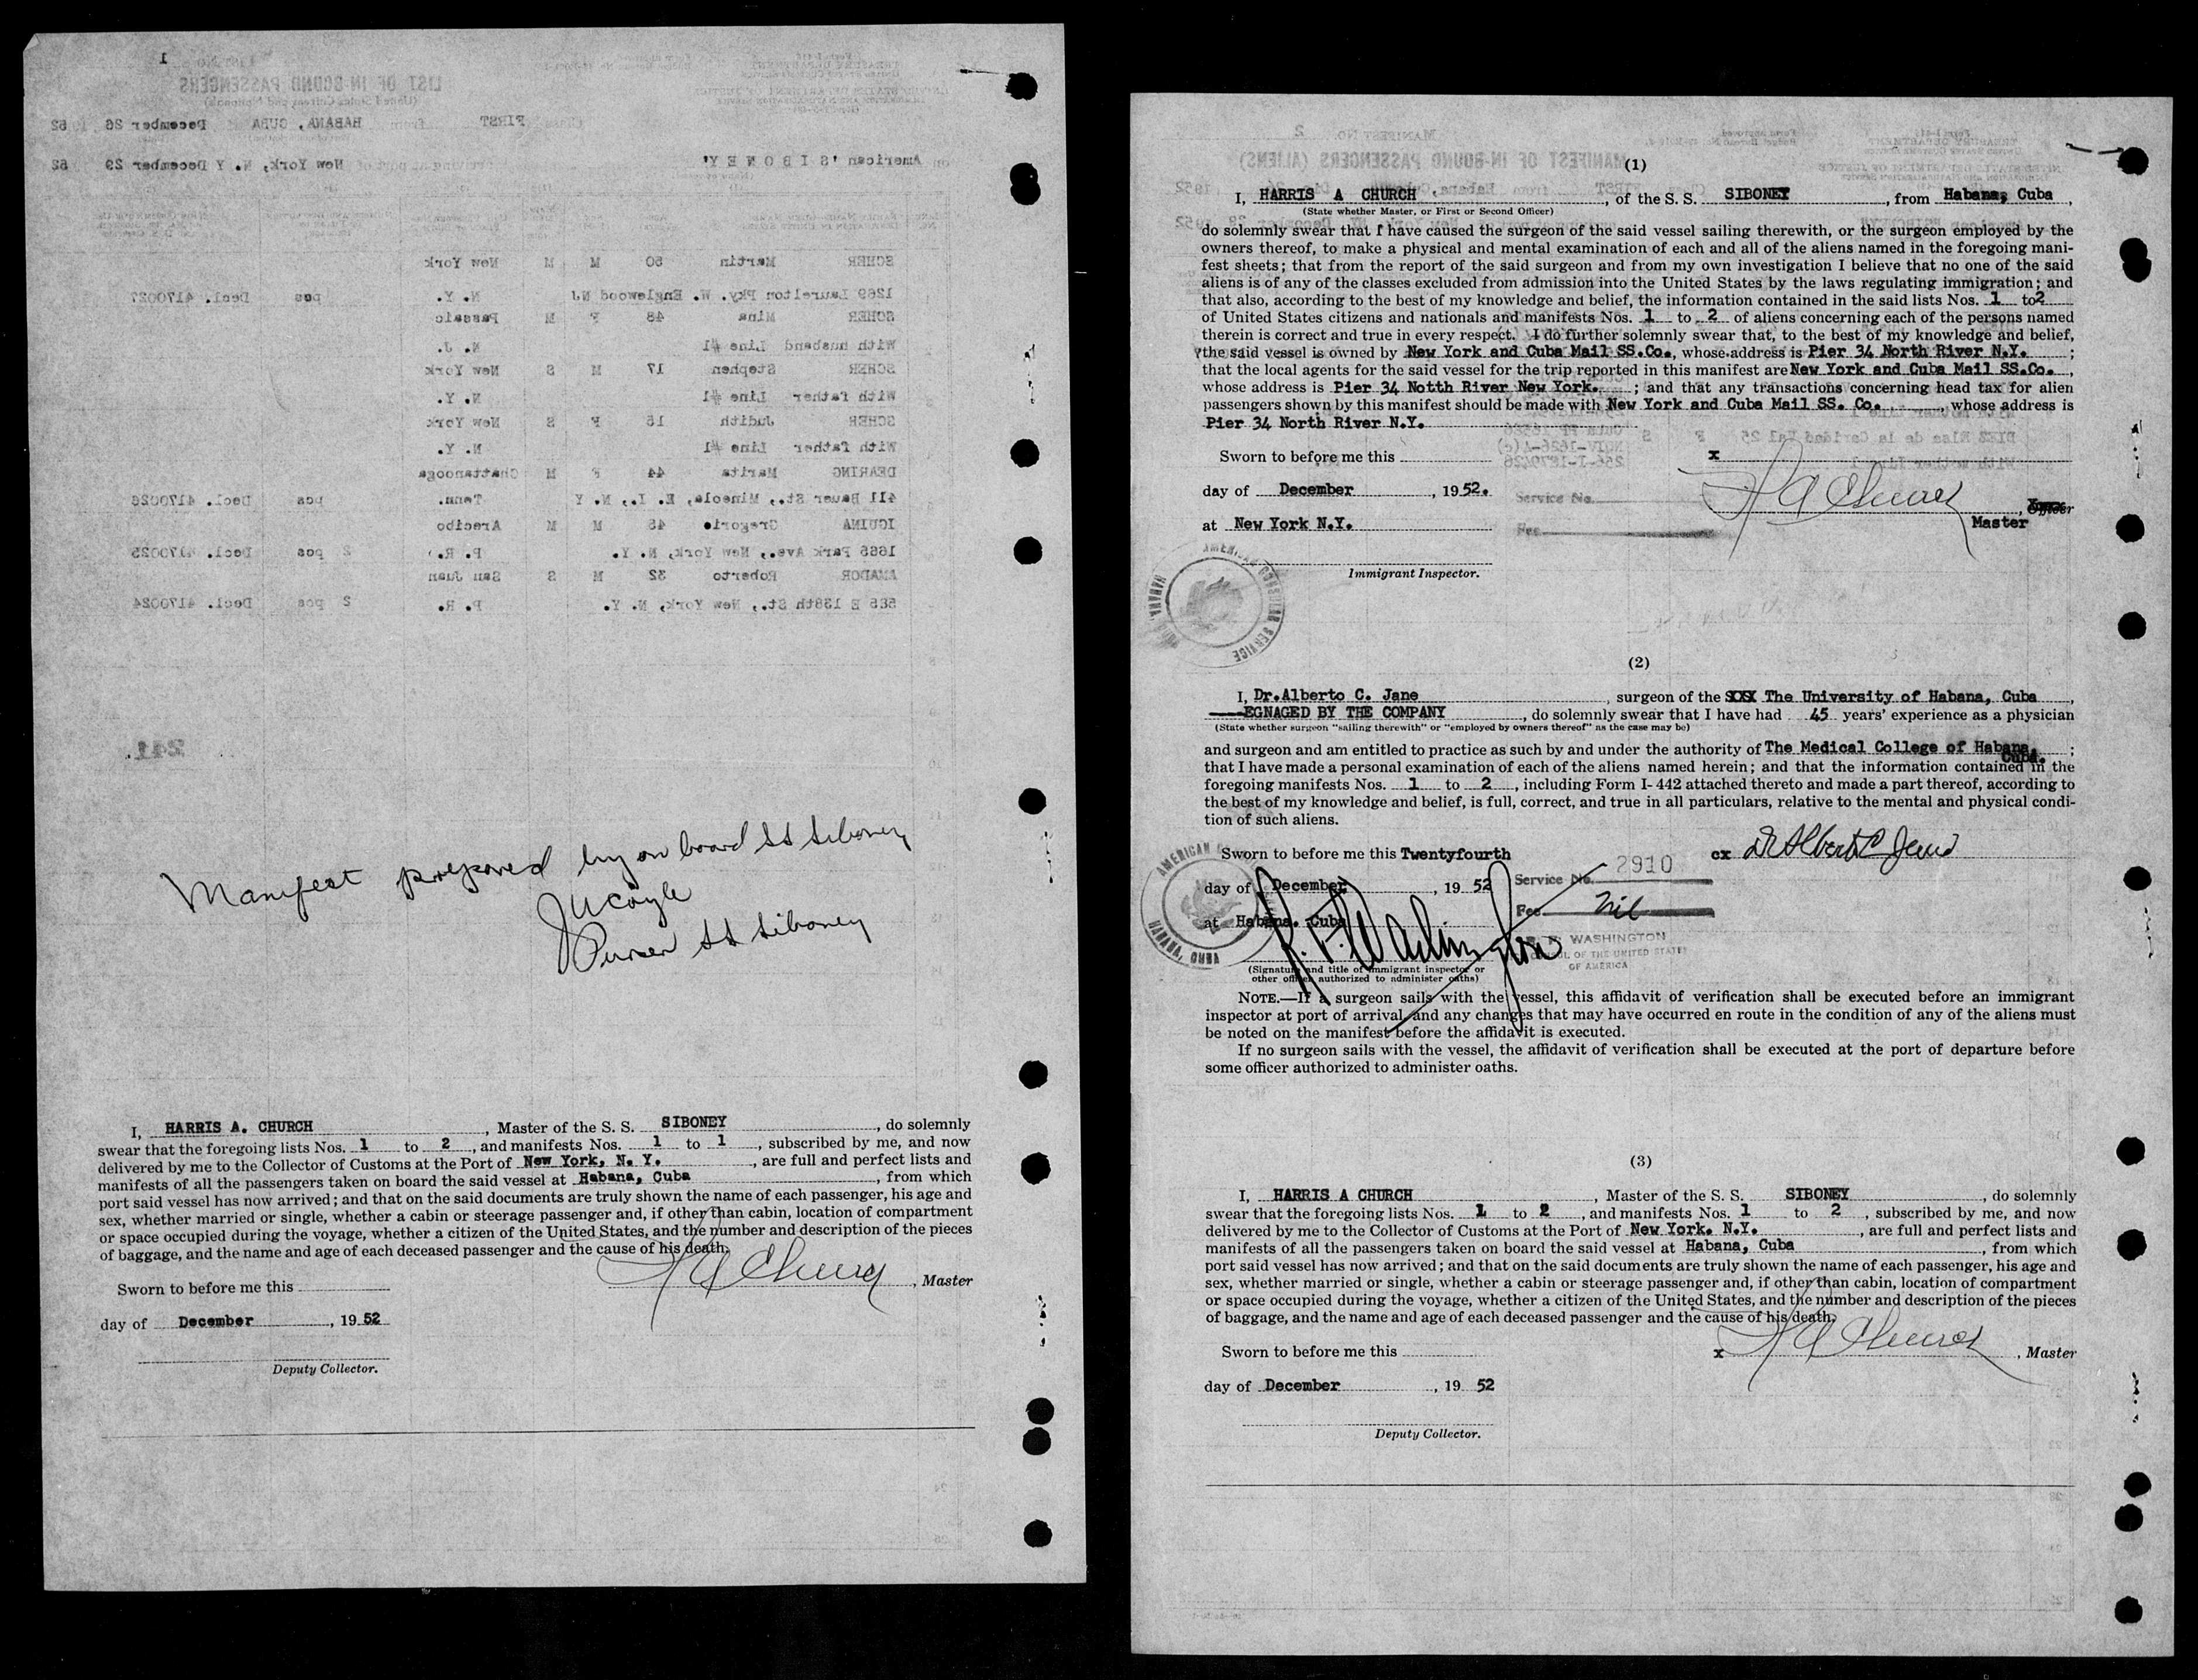 LIST OF IN-BOUND PASSENGERS
(United States Citizens and Nationals)
FIRST from HABANA, CUBA December 26 52
on American 'S I B O N E Y' arriving at port of New York, N. Y December 29 52
SCHER Martin 50 M M New York
1269 Laurelton Pky. W. Englewood NJ N. Y. pcs Decl. 4170027
SCHER Mina 48 F M Passaic
With husband Line #1 N. J.
SCHER Stephen 17 M S New York
With father Line #1 N. Y.
SCHER Judith 15 F S New York
With father Line #1 N. Y.
DEARING Marita 44 F M Chattanooga
411 Bauer St., Mineola, E. I., N. Y Tenn. pcs Decl. 4170026
IGUINA Gregorio 45 M M Arecibo
1685 Park Ave., New York, N. Y. P. R. 2 pcs Decl. 4170025
AMADOR Roberto 32 M S San Juan
535 E 138th St., New York, N. Y. P. R. 2 pcs Decl. 4170024
241.
Manifest prepared by on board SS Siboney
JW Coyle
Purser SS Siboney
I, HARRIS A. CHURCH, Master of the S. S. SIBONEY, do solemnly
swear that the foregoing lists Nos. 1 to 2, and manifests Nos. 1 to 1, subscribed by me, and now
delivered by me to the Collector of Customs at the Port of New York, N. Y., are full and perfect lists and
manifests of all the passengers taken on board the said vessel at Habana, Cuba, from which
port said vessel has now arrived; and that on the said documents are truly shown the name of each passenger, his age and
sex, whether married or single, whether a cabin or steerage passenger and, if other than cabin, location of compartment
or space occupied during the voyage, whether a citizen of the United States, and the number and description of the pieces
of baggage, and the name and age of each deceased passenger and the cause of his death.
H A Church, Master
Sworn to before me this
day of December, 1952
Deputy Collector.
MANIFEST NO. 2
MANIFEST OF IN-BOUND PASSENGERS (ALIENS)
(1)
I, HARRIS A CHURCH, of the S. S. SIBONEY, from Habana, Cuba,
(State whether Master, or First or Second Officer)
do solemnly swear that I have caused the surgeon of the said vessel sailing therewith, or the surgeon employed by the
owners thereof, to make a physical and mental examination of each and all of the aliens named in the foregoing mani-
fest sheets; that from the report of the said surgeon and from my own investigation I believe that no one of the said
aliens is of any of the classes excluded from admission into the United States by the laws regulating immigration; and
that also, according to the best of my knowledge and belief, the information contained in the said lists Nos. 1 to 2
of United States citizens and nationals and manifests Nos. 1 to 2 of aliens concerning each of the persons named
therein is correct and true in every respect. I do further solemnly swear that, to the best of my knowledge and belief,
the said vessel is owned by New York and Cuba Mail SS.Co., whose address is Pier 34 North River N.Y.;
that the local agents for the said vessel for the trip reported in this manifest are New York and Cuba Mail SS.Co.,
whose address is Pier 34 Notth River New York.; and that any transactions concerning head tax for alien
passengers shown by this manifest should be made with New York and Cuba Mail SS. Co., whose address is
Pier 34 North River N.Y.
Sworn to before me this x
day of December, 1952. Service No. H A Church, Officer
at New York N.Y. Fee Master
AMERICAN CONSULAR SERVICE
Immigrant Inspector.
(2)
I, Dr.Alberto C. Jane, surgeon of the SXSX The University of Habana, Cuba,
EGNAGED BY THE COMPANY, do solemnly swear that I have had 45 years' experience as a physician
(State whether surgeon "sailing therewith" or "employed by owners thereof" as the case may be)
and surgeon and am entitled to practice as such by and under the authority of The Medical College of Habana, Cuba.;
that I have made a personal examination of each of the aliens named herein; and that the information contained in the
foregoing manifests Nos. 1 to 2, including Form I-442 attached thereto and made a part thereof, according to
the best of my knowledge and belief, is full, correct, and true in all particulars, relative to the mental and physical condi-
tion of such aliens.
Sworn to before me this Twentyfourth cx Dr Albert C Jane
day of December, 1952 Service No. 2910
at Habana. Cuba Fee Nil
AMERICAN HABANA, CUBA
R. F. Washington
WASHINGTON
CONSUL OF THE UNITED STATES
OF AMERICA
(Signature and title of immigrant inspector or
other officer authorized to administer oaths)
NOTE.—If a surgeon sails with the vessel, this affidavit of verification shall be executed before an immigrant
inspector at port of arrival, and any changes that may have occurred en route in the condition of any of the aliens must
be noted on the manifest before the affidavit is executed.
If no surgeon sails with the vessel, the affidavit of verification shall be executed at the port of departure before
some officer authorized to administer oaths.
(3)
I, HARRIS A CHURCH, Master of the S. S. SIBONEY, do solemnly
swear that the foregoing lists Nos. 1 to 2, and manifests Nos. 1 to 2, subscribed by me, and now
delivered by me to the Collector of Customs at the Port of New York. N.Y., are full and perfect lists and
manifests of all the passengers taken on board the said vessel at Habana, Cuba, from which
port said vessel has now arrived; and that on the said documents are truly shown the name of each passenger, his age and
sex, whether married or single, whether a cabin or steerage passenger and, if other than cabin, location of compartment
or space occupied during the voyage, whether a citizen of the United States, and the number and description of the pieces
of baggage, and the name and age of each deceased passenger and the cause of his death.
Sworn to before me this x H A Church, Master
day of December, 19 52
Deputy Collector.